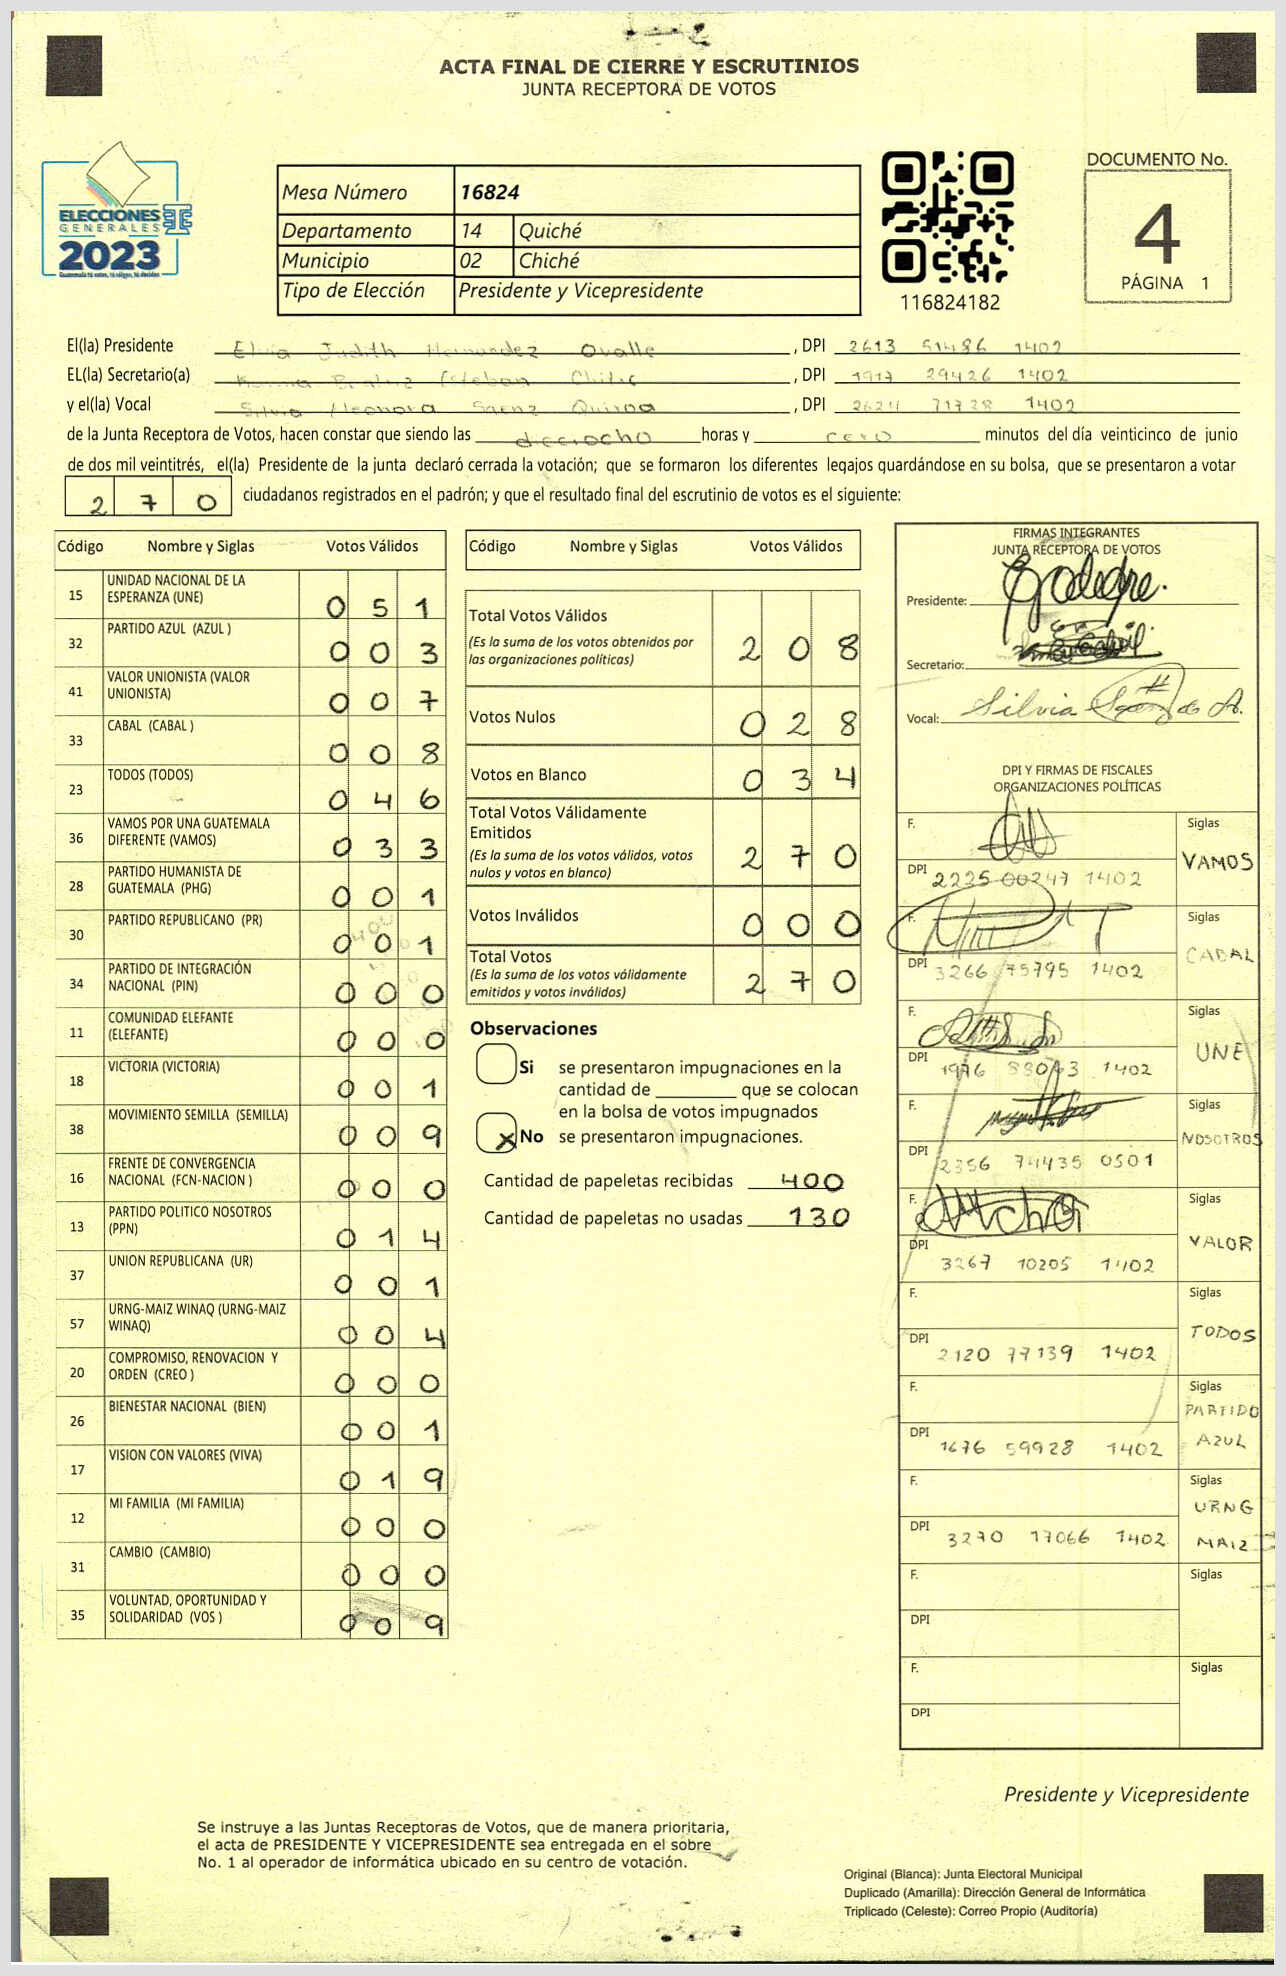 ACTA FINAL DE CIERRE Y ESCRUTINIOS
JUNTA RECEPTORA DE VOTOS
ELECCIONES
GENERALES
2023
Mesa Número 16824
Departamento 14 Quiché
Municipio 02 Chiché
Tipo de Elección Presidente y Vicepresidente
116824182
DOCUMENTO No.
4
PÁGINA 1
El(la) Presidente Elvia Judith Hernandez Ovalle , DPI 2613 51486 1402
EL(la) Secretario(a) Esteban , DPI 1917 29426 1402
y el(la) Vocal Silvia Eleonora Saenz Quiroa , DPI 2624 71728 1402
de la Junta Receptora de Votos, hacen constar que siendo las dieciocho horas y cero minutos del día veinticinco de junio
de dos mil veintitrés, el(la) Presidente de la junta declaró cerrada la votación; que se formaron los diferentes legajos guardándose en su bolsa, que se presentaron a votar
270 ciudadanos registrados en el padrón; y que el resultado final del escrutinio de votos es el siguiente:
Código Nombre y Siglas Votos Válidos
15 UNIDAD NACIONAL DE LA
ESPERANZA (UNE) 0 5 1
32 PARTIDO AZUL (AZUL ) 0 0 3
41 VALOR UNIONISTA (VALOR
UNIONISTA) 0 0 7
33 CABAL (CABAL ) 0 0 8
23 TODOS (TODOS) 0 4 6
36 VAMOS POR UNA GUATEMALA
DIFERENTE (VAMOS) 0 3 3
28 PARTIDO HUMANISTA DE
GUATEMALA (PHG) 0 0 1
30 PARTIDO REPUBLICANO (PR) 0 0 1
34 PARTIDO DE INTEGRACIÓN
NACIONAL (PIN) 0 0 0
11 COMUNIDAD ELEFANTE
(ELEFANTE) 0 0 0
18 VICTORIA (VICTORIA) 0 0 1
38 MOVIMIENTO SEMILLA (SEMILLA) 0 0 9
16 FRENTE DE CONVERGENCIA
NACIONAL (FCN-NACION ) 0 0 0
13 PARTIDO POLITICO NOSOTROS
(PPN) 0 1 4
37 UNION REPUBLICANA (UR) 0 0 1
57 URNG-MAIZ WINAQ (URNG-MAIZ
WINAQ) 0 0 4
20 COMPROMISO, RENOVACION Y
ORDEN (CREO ) 0 0 0
26 BIENESTAR NACIONAL (BIEN) 0 0 1
17 VISION CON VALORES (VIVA) 0 1 9
12 MI FAMILIA (MI FAMILIA) 0 0 0
31 CAMBIO (CAMBIO) 0 0 0
35 VOLUNTAD, OPORTUNIDAD Y
SOLIDARIDAD (VOS ) 0 0 9
Código Nombre y Siglas Votos Válidos
Total Votos Válidos
(Es la suma de los votos obtenidos por
las organizaciones políticas) 2 0 8
Votos Nulos 0 2 8
Votos en Blanco 0 3 4
Total Votos Válidamente
Emitidos
(Es la suma de los votos válidos, votos
nulos y votos en blanco) 2 7 0
Votos Inválidos 0 0 0
Total Votos
(Es la suma de los votos válidamente
emitidos y votos inválidos) 2 7 0
Observaciones
Si se presentaron impugnaciones en la
cantidad de que se colocan
en la bolsa de votos impugnados
X No se presentaron impugnaciones.
Cantidad de papeletas recibidas 400
Cantidad de papeletas no usadas 130
FIRMAS INTEGRANTES
JUNTA RECEPTORA DE VOTOS
Presidente:
Secretario:
Vocal: Silvia
DPI Y FIRMAS DE FISCALES
ORGANIZACIONES POLÍTICAS
F. Siglas
DPI 2225 00247 1402 VAMOS
F. Siglas
DPI 3266 75795 1402 CABAL
F. Siglas
DPI 1976 1402 UNE
F. Siglas
DPI 2356 74435 0501 NOSOTROS
F. Siglas
DPI 3267 10205 1402 VALOR
F. Siglas
DPI 2120 77139 1402 TODOS
F. Siglas
DPI 1676 59928 1402 PARTIDO
AZUL
F. Siglas
DPI 3270 17066 1402 URNG
MAIZ
F. Siglas
DPI
F. Siglas
DPI
Presidente y Vicepresidente
Se instruye a las Juntas Receptoras de Votos, que de manera prioritaria,
el acta de PRESIDENTE Y VICEPRESIDENTE sea entregada en el sobre
No. 1 al operador de informática ubicado en su centro de votación.
Original (Blanca): Junta Electoral Municipal
Duplicado (Amarilla): Dirección General de Informática
Triplicado (Celeste): Correo Propio (Auditoría)